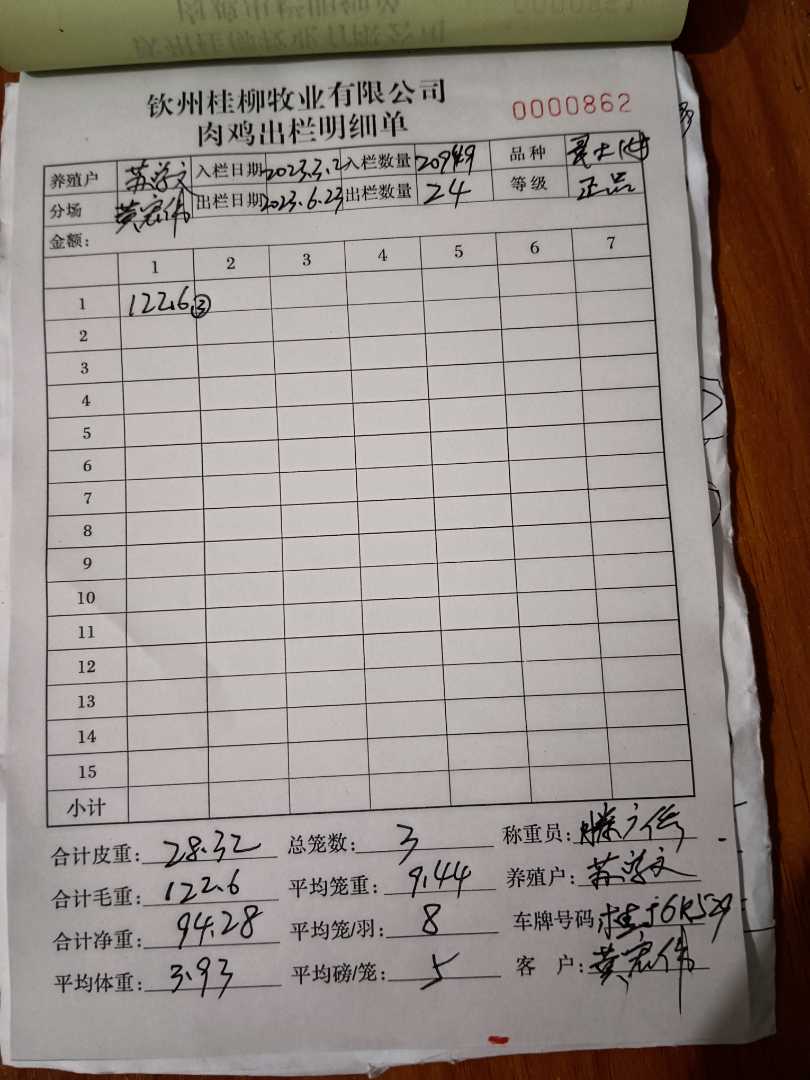 钦州桂柳牧业有限公司
肉鸡出栏明细单
0000862
养殖户 苏学文 入栏日期 2023.3.2 入栏数量 20949 品种
分场 黄宏伟 出栏日期 2023.6.23 出栏数量 24 等级 正品
金额:
1 2 3 4 5 6 7
1 122.6 ③
2
3
4
5
6
7
8
9
10
11
12
13
14
15
小计
合计皮重: 28.32 总笼数: 3 称重员:
合计毛重: 122.6 平均笼重: 9.44 养殖户: 苏学文
合计净重: 94.28 平均笼/羽: 8 车牌号码
平均体重: 3.93 平均磅/笼: 5 客 户: 黄宏伟